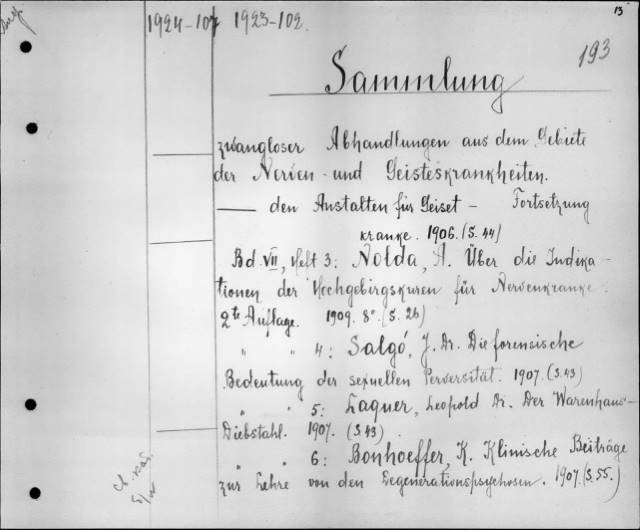 13
1924-107 1923-102.
193
Sammlung
zwangloser Abhandlungen aus dem Gebiete
der Nerven- und Geisteskrankheiten.
— den Anstalten für Geiset – Fortsetzung
kranke. 1906. (S. 44)
Bd. VII, Heft 3: Nolda, A. Über die Indika-
tionen der Hochgebirgskuren für Nervenkranke.
2te Auflage. 1909. 8°. (S. 26)
" " 4: Salgó, J. Dr. Die forensische
Bedeutung der sexuellen Perversität. 1907. (S. 43)
" " 5: Laquer, Leopold Dr. Der Warenhaus-
Diebstahl. 1907. (S. 43)
" " 6: Bonhoeffer, K. Klinische Beiträge
zur Lehre von den Degenerationspsychosen. 1907. (S. 55.)